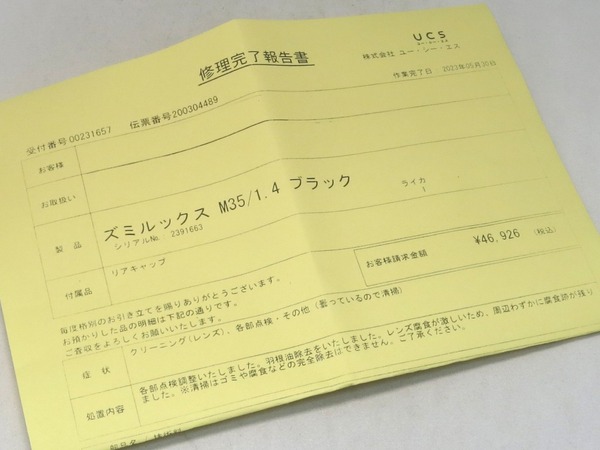 修理完了報告書
UCS
株式会社 ユー・シー・エス
作業完了日 2023年05月30日
受付番号00231657 伝票番号200304489
お客様
お取扱い
製品 ズミルックス M35/1.4 ブラック ライカ
シリアルNo. 2391663 1
付属品 リアキャップ
お客様請求金額 ¥46,926 (税込)
毎度格別のお引き立てを賜りありがとうございます。
お預かりした品の明細は下記の通りです。
ご査収をよろしくお願いいたします。
症状 クリーニング(レンズ)、各部点検・その他(曇っているので清掃)
処置内容 各部点検調整いたしました。羽根油除去をいたしました。レンズ腐食が激しいため、周辺わずかに腐食跡が残り
ました。※清掃はゴミや腐食などの完全除去はできません。ご了承ください。
部品名